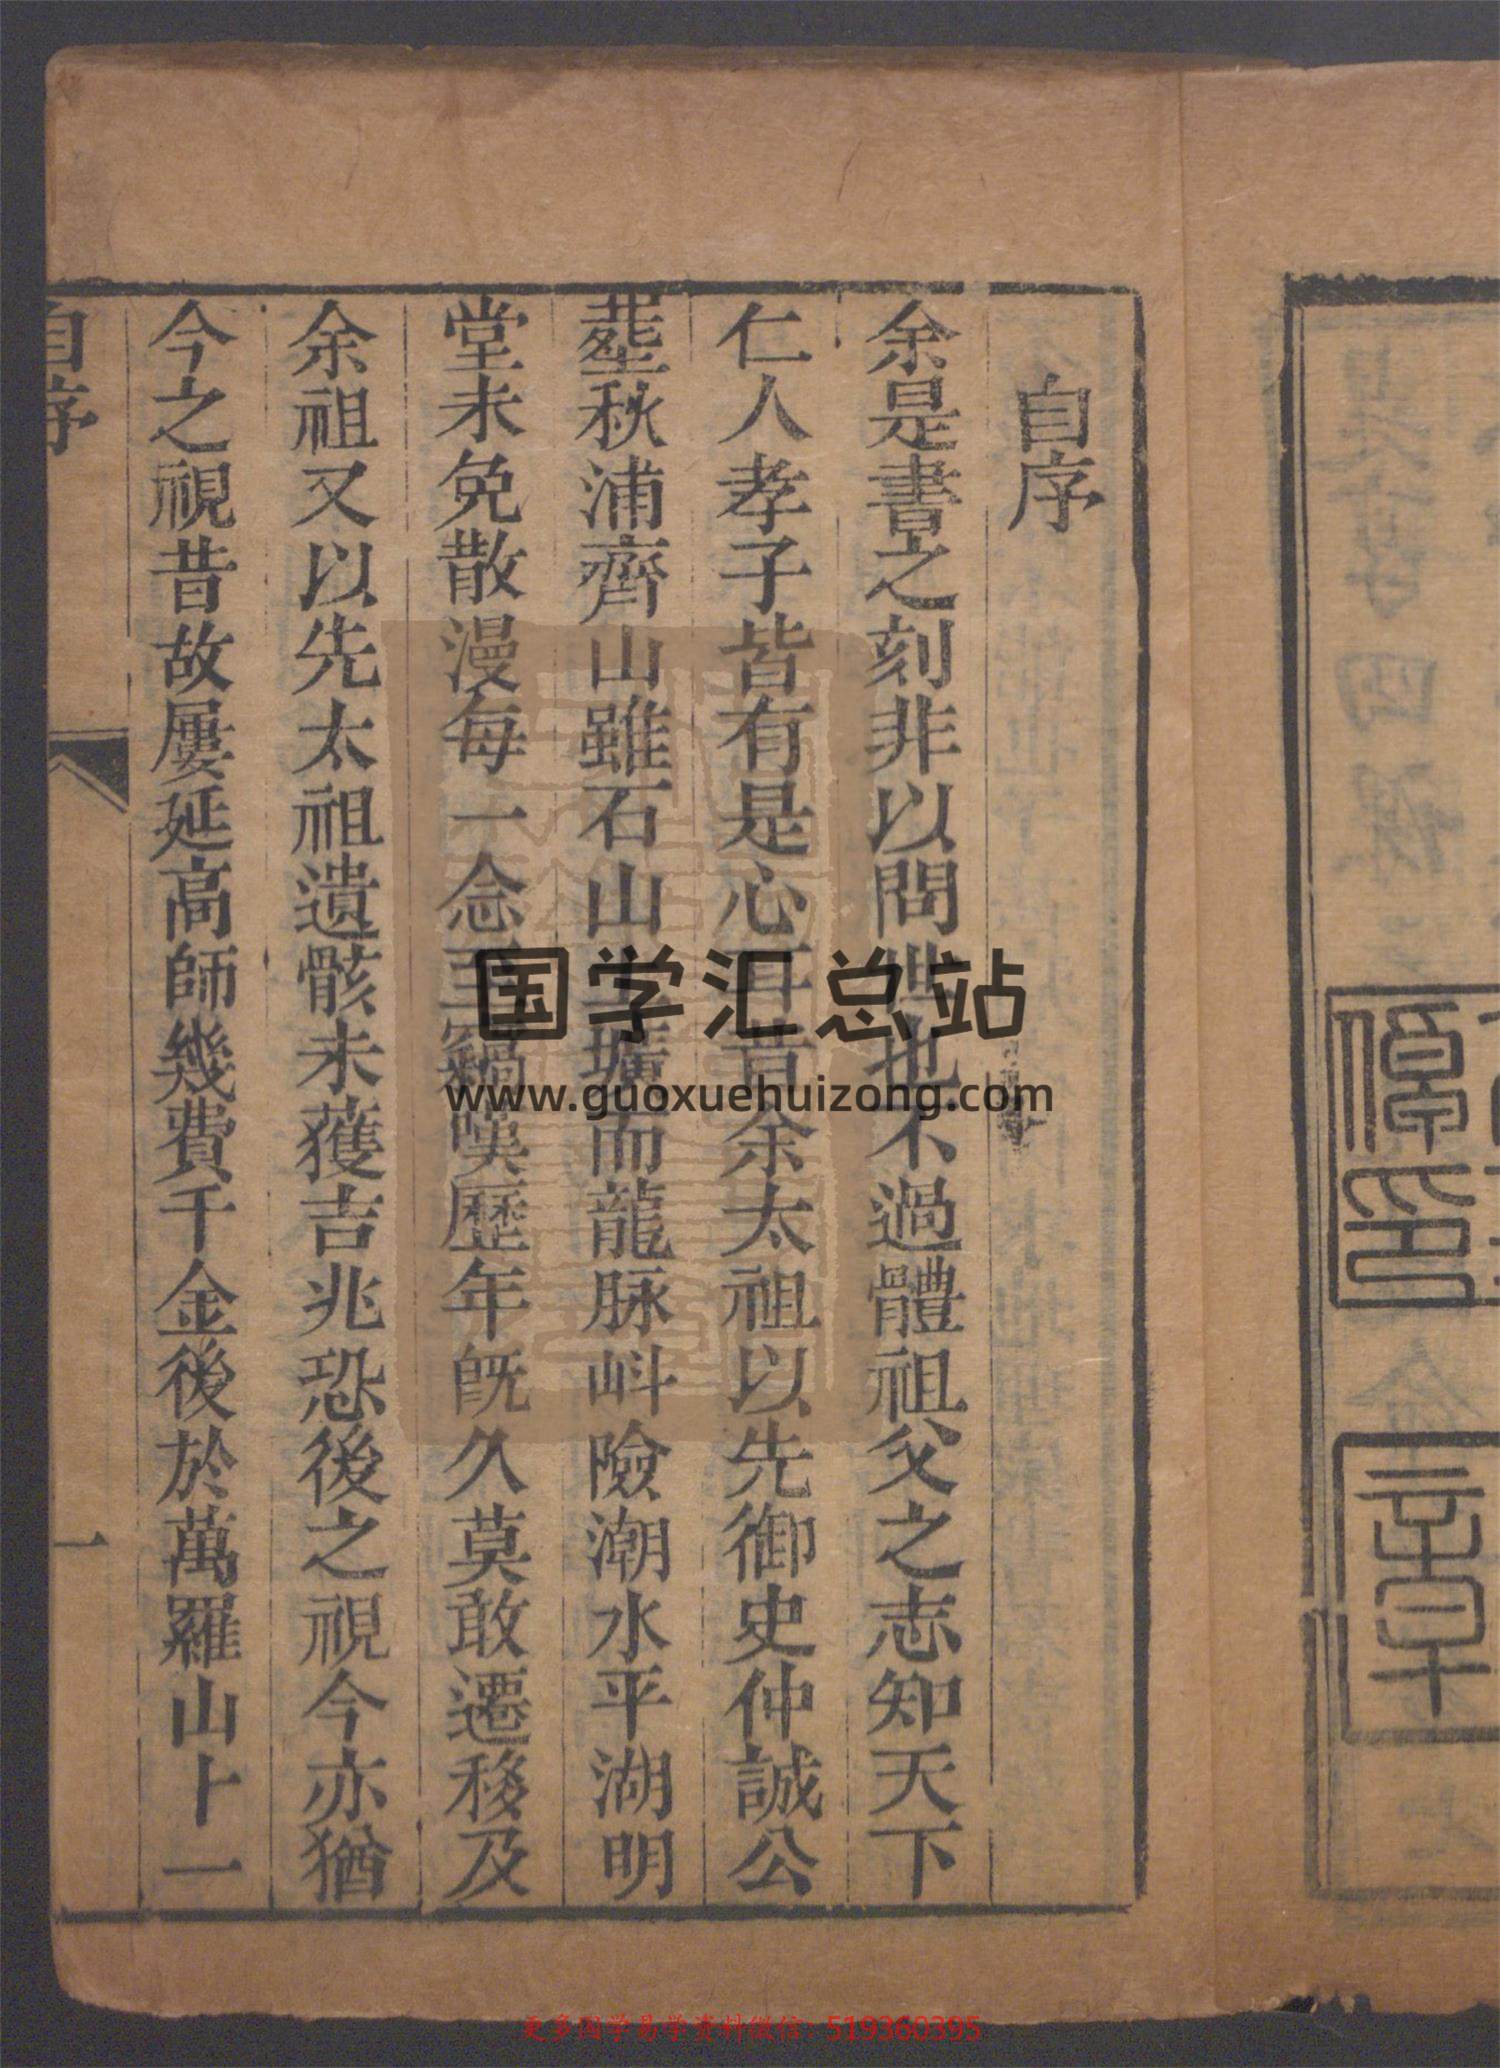 自序
余是書之刻非以問世也不過體祖父之志知天下
仁人孝子皆有是心耳昔余太祖以先御史仲誠公
塟秋浦齊山雖石山土壙而龍脉峙險潮水平湖明
堂未免散漫每一念至竊嘆歷年旣久莫敢遷移及
余祖又以先太祖遺骸未獲吉兆恐後之視今亦猶
今之視昔故屢延高師幾費千金後於萬羅山卜一
自序
一
国学汇总站
www.guoxuehuizong.com
更多国学易学资料微信:519360395